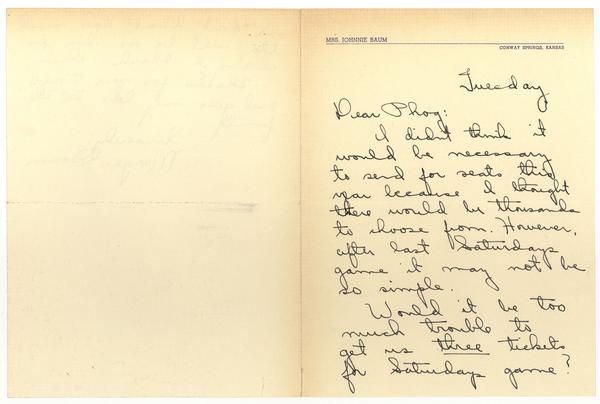 MRS. JOHNNIE BAUM
CONWAY SPRINGS, KANSAS
Tuesday
Dear Phog:
I didn't think it
would be necessary
to send for seats this
year because I thought
there would be thousands
to choose from. However,
after last Saturdays
game it may not be
so simple.
Would it be too
much trouble to
get us three tickets
for Saturdays game?